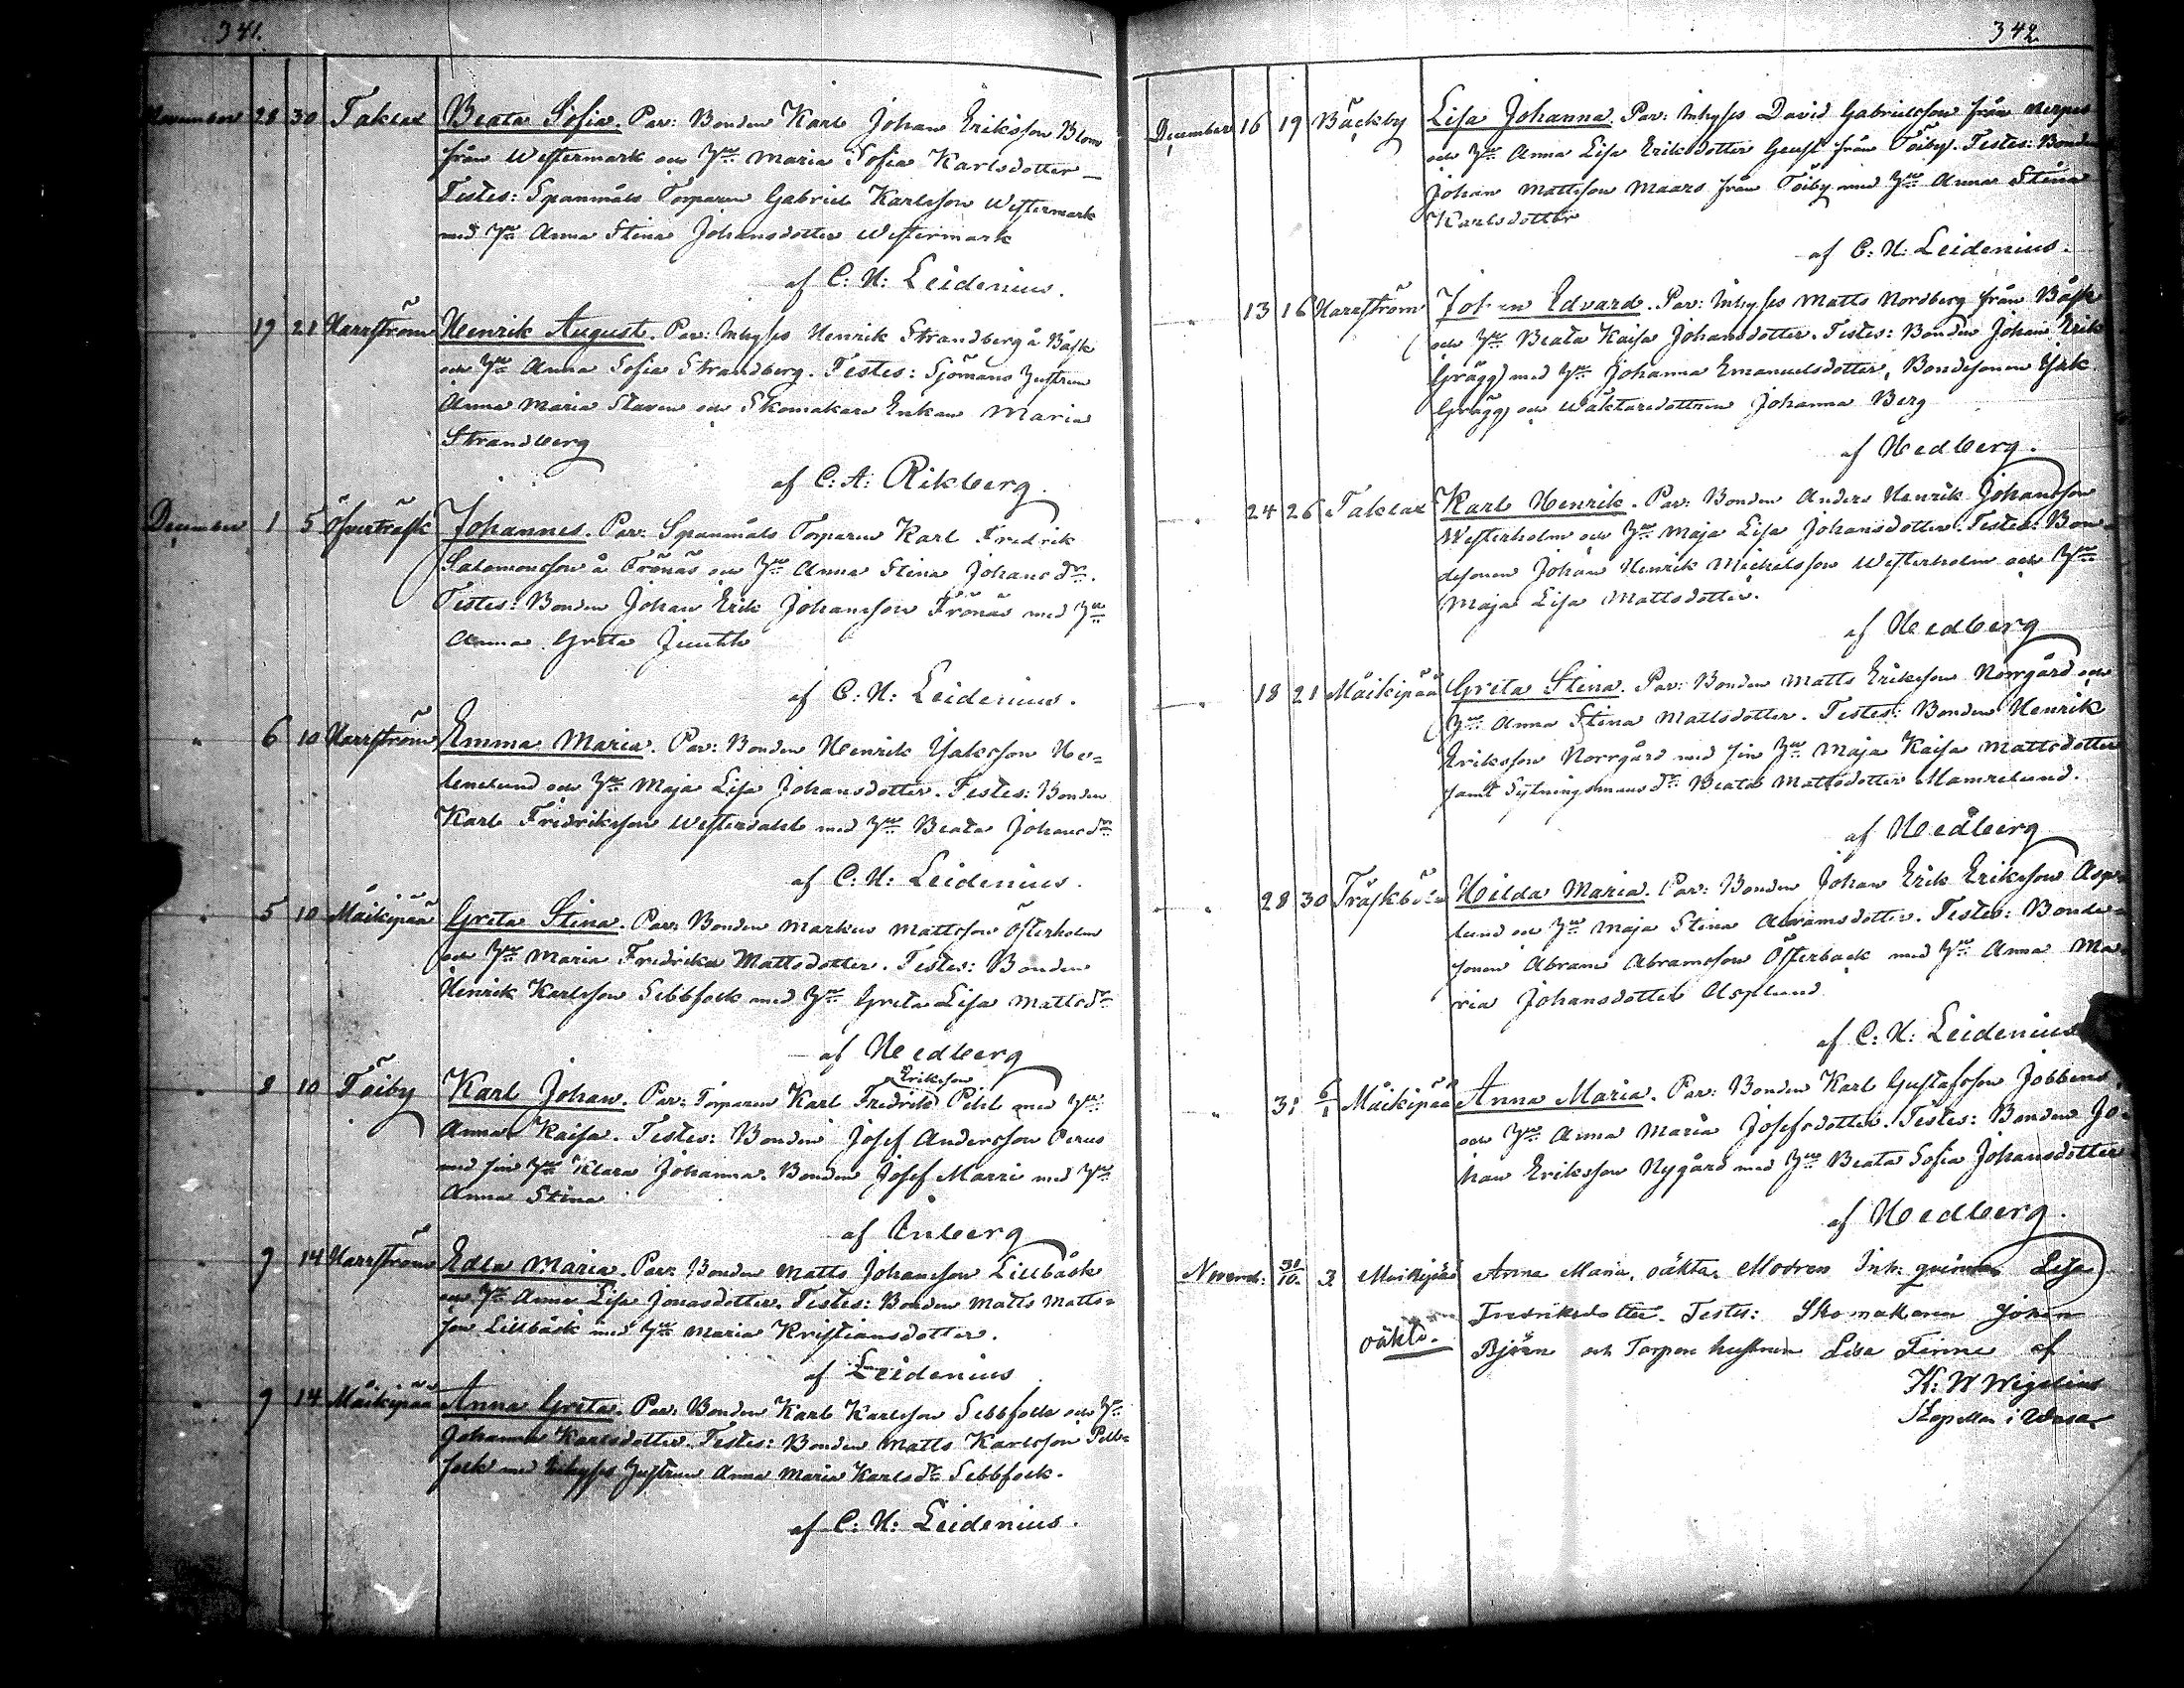 341.
November 28 30 Taklax Beata Sofia. Par: Bonden Karl Johan Eriksson Blom
från Westermark och H:u Maria Sofia Karlsdotter
Testes: Spanmåls Torparen Gabriel Karlsson Westermark
med H:u Anna Stina Johansdotter Westermark
af C: H: Leidenius.
" 19 21 Harrström Henrik August. Par: Inhyses Henrik Strandberg å Båsk
och H:u Anna Sofia Strandberg. Testes: Sjömans hustrun
Anna Maria Staven och Skomakare Enkan Maria
Strandberg
af C: A: Rikberg
December 1 5 Öfverträsk Johannes. Par: Spanmåls Torparen Karl Fredrik
Salomonsson å Trönäs och H:u Anna Stina Johansd:r.
Testes: Bonden Johan Erik Johansson Trönäs med H:u
Anna Greta
af C: H: Leidenius.
" 6 10 Harrström Emma Maria. Par: Bonden Henrik Isaksson He=
lenelund och H:u Maja Lisa Johansdotter. Testes: Bonden
Karl Fredriksson Westerdahl med H:u Beata Johansd:r
af C: H: Leidenius.
" 5 10 Måikipää Greta Stina. Par: Bonden Markus Mattsson Österholm
och H:u Maria Fredrika Mattsdotter. Testes: Bonden
Henrik Karlsson Sebbfolk med H:u Greta Lisa Mattsd:r
af Hedberg
" 8 10 Töiby Karl Johan. Par: Torparen Karl Fredrik Eriksson Pehl med H:u
Anna Kaisa. Testes: Bonden Josef Andersson Perus
med sin H:u Klara Johanna. Bonden Josef Marri med H:u
Anna Stina
af Ånberg
" 9 14 Harrström Edla Maria. Par: Bonden Matts Johansson Lillbåsk
och H:u Anna Lisa Jonasdotter. Testes: Bonden Matts Matts=
son Lillbåsk med H:u Maria Kristiansdotter.
af Leidenius
" 9 14 Måikipää Anna Greta. Par: Bonden Karl Karlsson Sebbfolk och H:u
Johanna Karlsdotter. Testes: Bonden Matts Karlsson Sebb=
folk med Inhyses hustrun Anna Maria Karlsd:r Sebbfolk.
af C: H: Leidenius.
342
December 16 19 Bäckby Lisa Johanna. Par: Inhyses David Gabrielsson från Nerpes
och H:u Anna Lisa Eriksdotter Geust från Töiby. Testes: Bonden
Johan Mattsson Maars från Töiby med H:u Anna Stina
Karlsdotter
af C: H: Leidenius.
" 13 16 Harrström Johan Edvard. Par: Inhyses Matts Nordberg från Båsk
och H:u Beata Kaisa Johansdotter. Testes: Bonden Johan Erik
Grägg med H:u Johanna Emanuelsdotter, Bondesonen Isak
Grägg och Wäktaredottren Johanna Berg
af Hedberg.
" 24 26 Taklax Karl Henrik. Par: Bonden Anders Henrik Johansson
Westerholm och H:u Maja Lisa Johansdotter. Testes: Bon=
desonen Johan Henrik Michelsson Westerholm och H:u
Maja Lisa Mattsdotter.
af Hedberg
" 18 21 Måikipää Greta Stina. Par: Bonden Matts Eriksson Norrgård och
H:u Anna Stina Mattsdotter. Testes: Bonden Henrik
Eriksson Norrgård med sin H:u Maja Kaisa Mattsdotter
samt Sytningsmans d:r Beata Mattsdotter Mamrelund.
af Hedberg
" 28 30 Träskböle Hilda Maria. Par: Bonden Johan Erik Eriksson Asp=
lund och H:u Maja Stina Abramsdotter. Testes: Bonde=
sonen Abram Abramsson Österback med H:u Anna Ma=
ria Johansdotter Asplund
af C: H: Leidenius
" 31 6/1 Måikipää Anna Maria. Par: Bonden Karl Gustafsson Jobbens
och H:u Anna Maria Josefsdotter. Testes: Bonden Jo=
han Eriksson Nygård med H:u Beata Sofia Johansdotter
af Hedberg.
Novemb: 31/10 3 Måikipää Anna Maria, oäkta. Modren Inh: qvinnan Lisa
Fredriksdotter. Testes: Skomakaren Johan
oäkta. Björn och Torpare hustrun Lisa Finne af
K: W Wigelius
Kapellan i Wasa